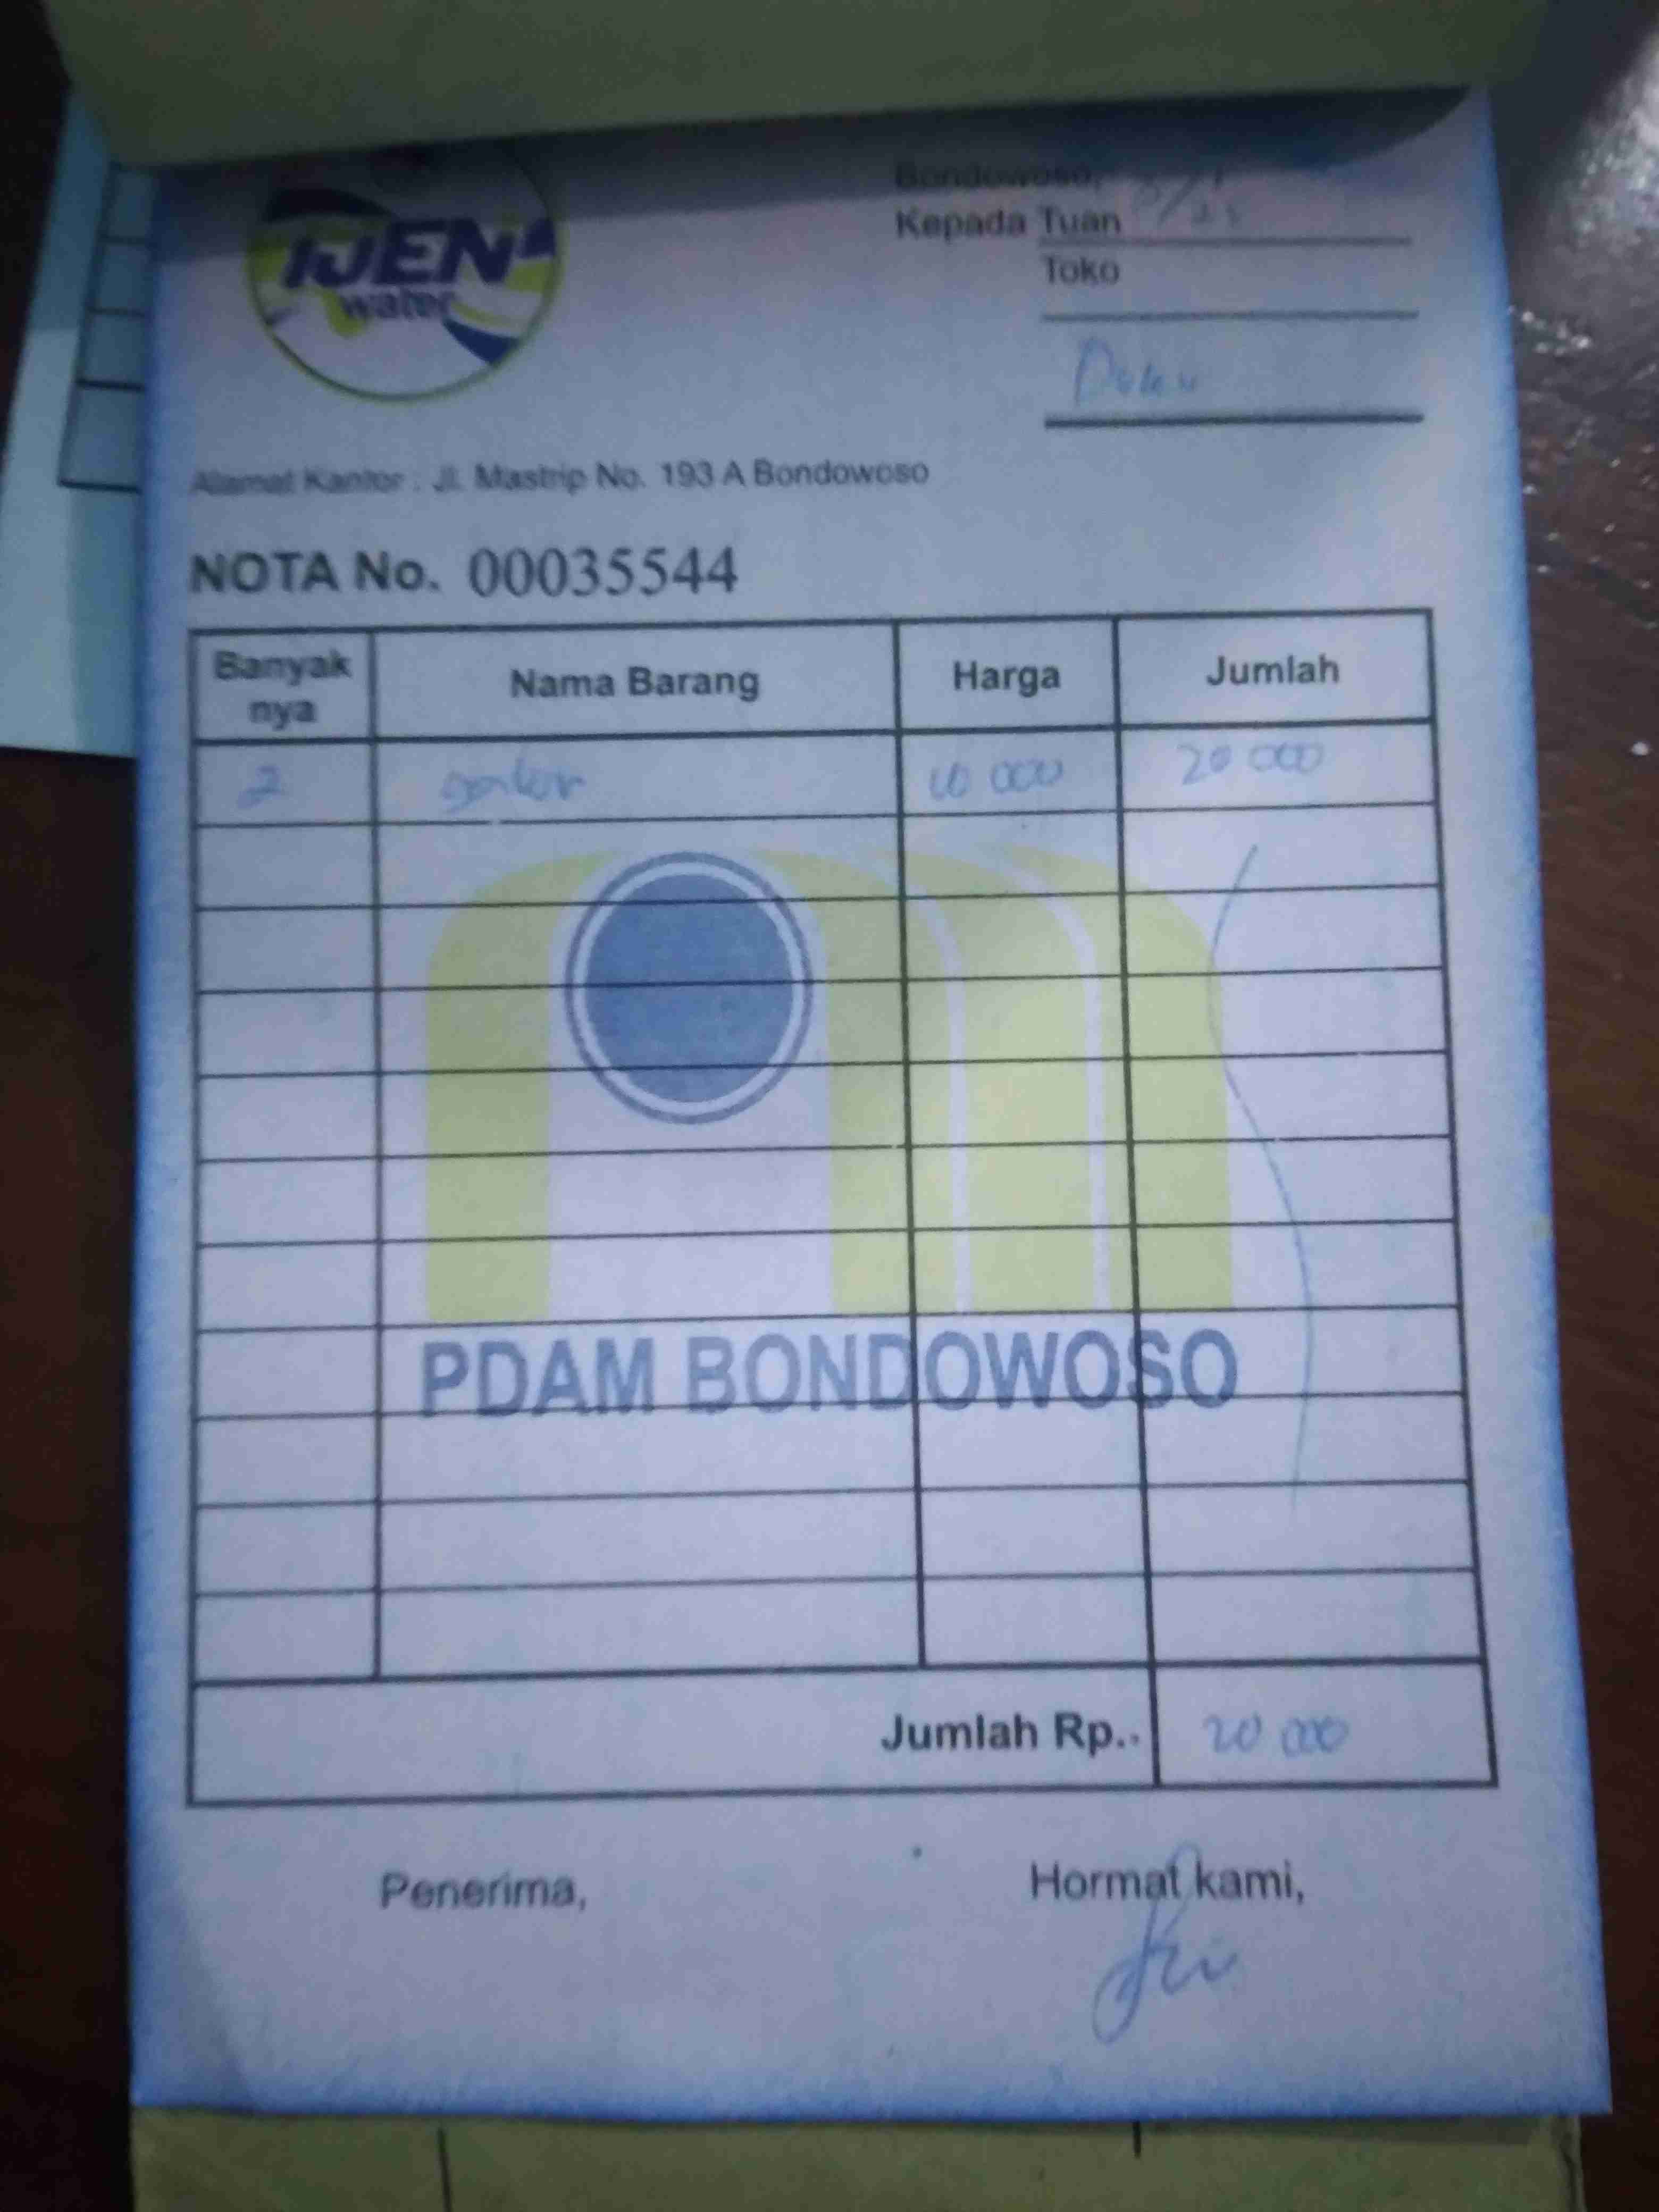 IJEN
water
Bondowoso,
Kepada Tuan
Toko
Alamat Kantor : Jl. Mastrip No. 193 A Bondowoso
NOTA No. 00035544
Banyak nya Nama Barang Harga Jumlah
2 galon 10 000 20 000
PDAM BONDOWOSO
Jumlah Rp.. 20 000
Penerima, Hormat kami,